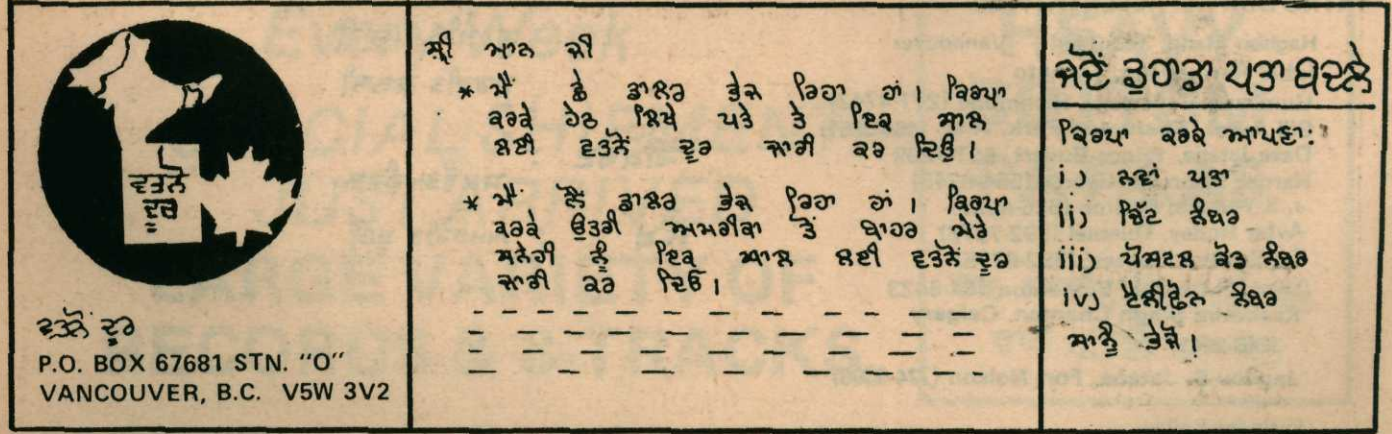 ਵਤਨੋਂ
ਦੂਰ
ਵਤਨੋਂ ਦੂਰ
P.O. BOX 67681 STN. "O"
VANCOUVER, B.C. V5W 3V2
ਸ੍ਰੀ ਮਾਨ ਜੀ
* ਮੈਂ ਛੇ ਡਾਲਰ ਭੇਜ ਰਿਹਾ ਹਾਂ। ਕਿਰਪਾ
ਕਰਕੇ ਹੇਠ ਲਿਖੇ ਪਤੇ ਤੇ ਇਕ ਸਾਲ
ਲਈ ਵਤਨੋਂ ਦੂਰ ਜਾਰੀ ਕਰ ਦਿਉ।
* ਮੈਂ ਨੌਂ ਡਾਲਰ ਭੇਜ ਰਿਹਾ ਹਾਂ। ਕਿਰਪਾ
ਕਰਕੇ ਉਤਰੀ ਅਮਰੀਕਾ ਤੋਂ ਬਾਹਰ ਮੇਰੇ
ਸਨੇਹੀ ਨੂੰ ਇਕ ਸਾਲ ਲਈ ਵਤਨੋਂ ਦੂਰ
ਜਾਰੀ ਕਰ ਦਿਓ।
ਜਦੋਂ ਤੁਹਾਡਾ ਪਤਾ ਬਦਲੇ
ਕਿਰਪਾ ਕਰਕੇ ਆਪਣਾ:
i) ਨਵਾਂ ਪਤਾ
ii) ਯੂਨਿਟ ਨੰਬਰ
iii) ਪੋਸਟਲ ਕੋਡ ਨੰਬਰ
iv) ਟੈਲੀਫੋਨ ਨੰਬਰ
ਸਾਨੂੰ ਭੇਜੋ।